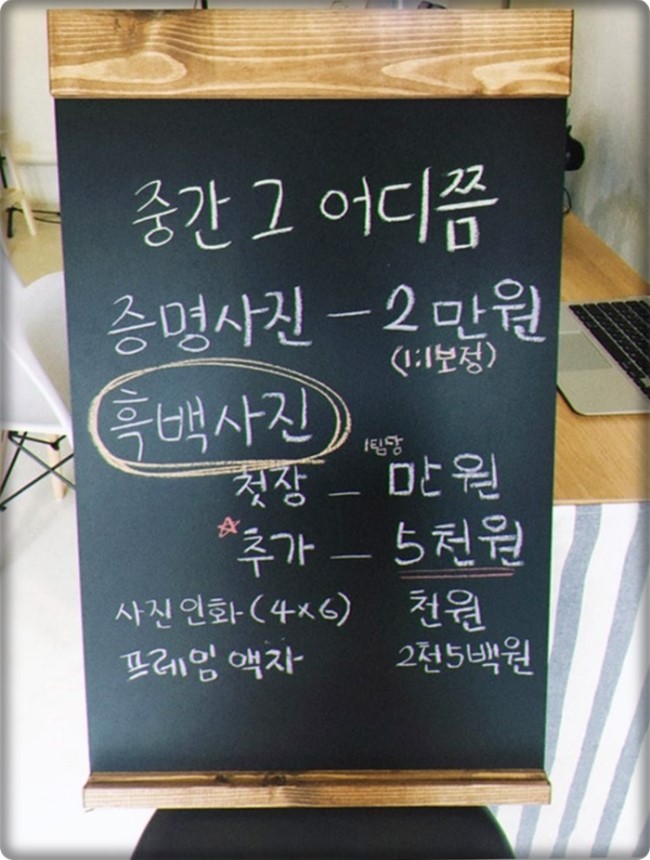 중간 그 어디쯤
증명사진 - 2만원
(1:1보정)
흑백사진
1팀당
첫장 - 만원
추가 - 5천원
사진인화(4×6) 천원
프레임액자 2천5백원